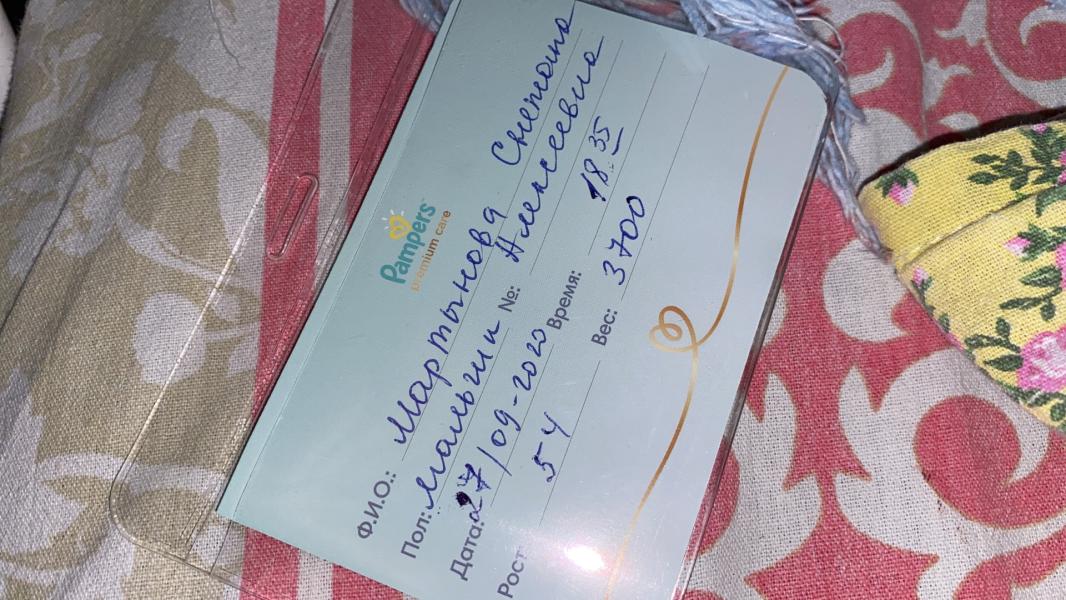 Pampers
premium care
Ф.И.О.: Мартынова Снежана
Алексеевна
Пол: Мальчик №:
Дата: 27/09-2020 Время: 18.35
Рост 54 Вес: 3700